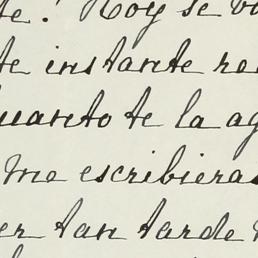 te! Hoy se v
te instante re
uanto te la ag
me escribieras
er tan tarde